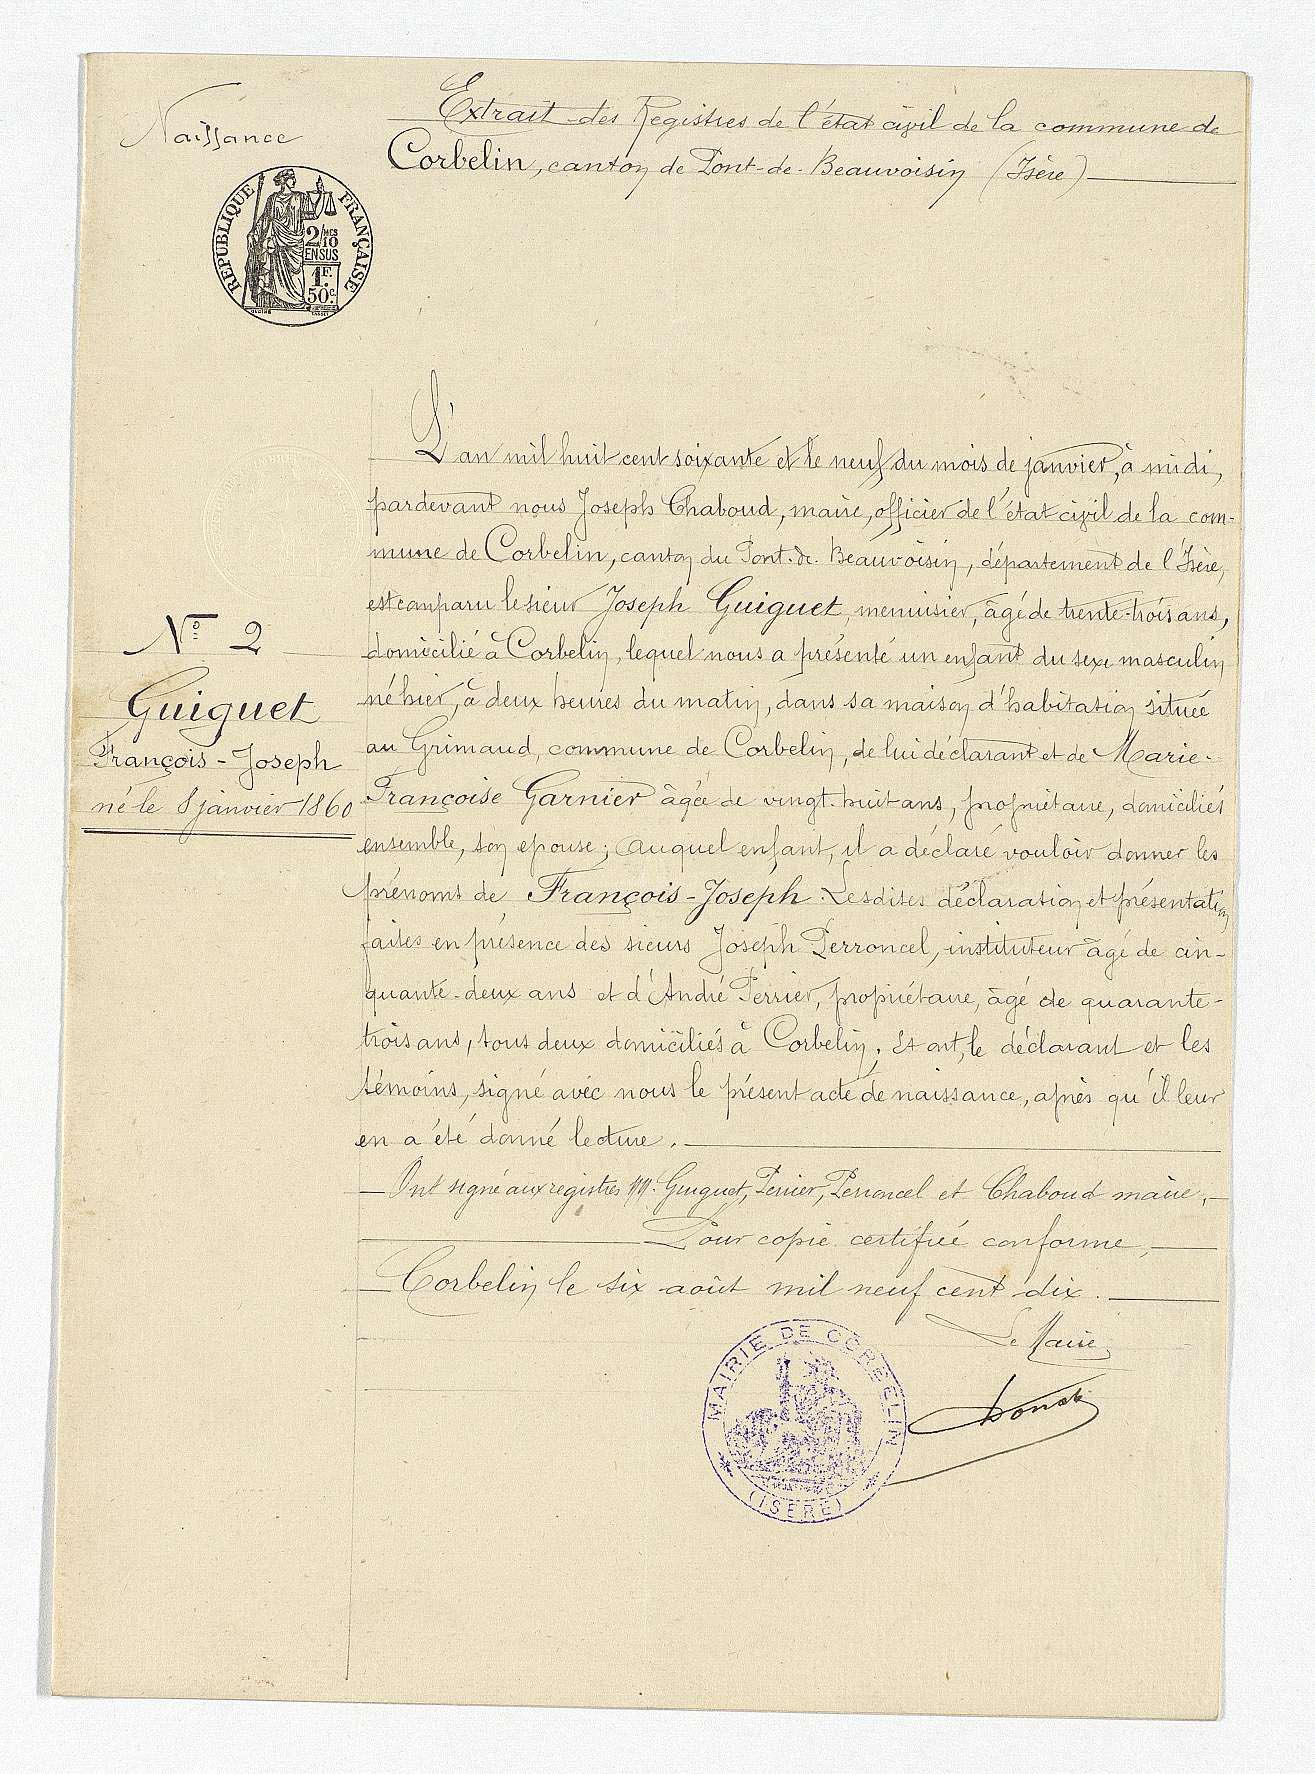 Naissance
Extrait des Registres de l'état civil de la commune de
Corbelin, canton de Pont-de-Beauvoisin (Isère)
RÉPUBLIQUE FRANÇAISE
2/10 MES
EN SUS
1F.
50c.
L'an mil huit cent soixante et le neuf du mois de janvier, à midi,
pardevant nous Joseph Chaboud, maire, officier de l'état civil de la com-
mune de Corbelin, canton du Pont-de-Beauvoisin, département de l'Isère,
est comparu le sieur Joseph Guiguet, menuisier, âgé de trente-trois ans,
domicilié à Corbelin, lequel nous a présenté un enfant du sexe masculin
né hier, à deux heures du matin, dans sa maison d'habitation située
au Grimaud, commune de Corbelin, de lui déclarant et de Marie-
Françoise Garnier âgée de vingt-huit ans, propriétaire, domiciliés
ensemble, son épouse; auquel enfant, il a déclaré vouloir donner les
prénoms de François-Joseph. Lesdites déclaration et présentation
faites en présence des sieurs Joseph Perroncel, instituteur âgé de cin-
quante-deux ans et d'André Perrier, propriétaire, âgé de quarante-
trois ans, tous deux domiciliés à Corbelin. Et ont, le déclarant et les
témoins, signé avec nous le présent acte de naissance, après qu'il leur
en a été donné lecture.
Ont signé aux registres MM. Guiguet, Perrier, Perroncel et Chaboud maire,
Pour copie certifiée conforme,
Corbelin le six août mil neuf cent dix.
Le Maire,
N° 2
Guiguet
François-Joseph
né le 8 janvier 1860
MAIRIE DE CORBELIN
(ISÈRE)